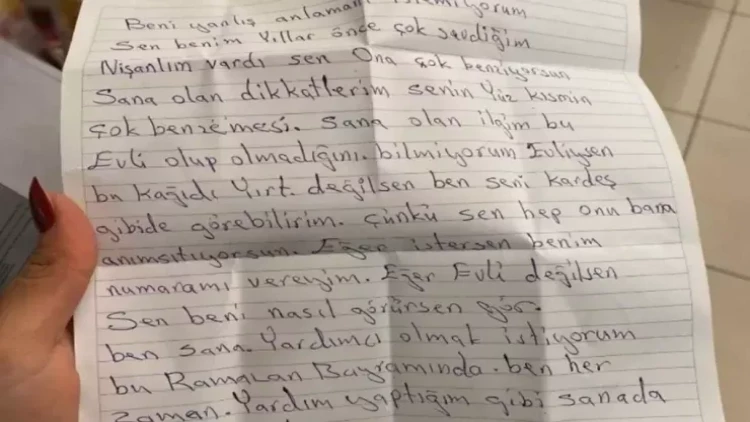 Beni yanlış anlamanı istemiyorum
Sen benim Yıllar önce çok sevdiğim
Nişanlım vardı sen Ona çok benziyorsun
Sana olan dikkatlerim senin Yüz kısmin
çok benzemesi. Sana olan ilgim bu
Evli olup olmadığını. bilmiyorum Evliysen
bu kağıdı Yırt. değilsen ben seni kardeş
gibide görebilirim. çünkü sen hep onu bana
anımsıtıyorsun. Eğer istersen benim
numaramı vereyim. Eğer Evli değilsen
Sen beni nasıl görürsen gör.
ben sana. Yardımcı olmak istiyorum
bu Ramazan Bayramında. ben her
zaman. Yardım yaptığım gibi sanada